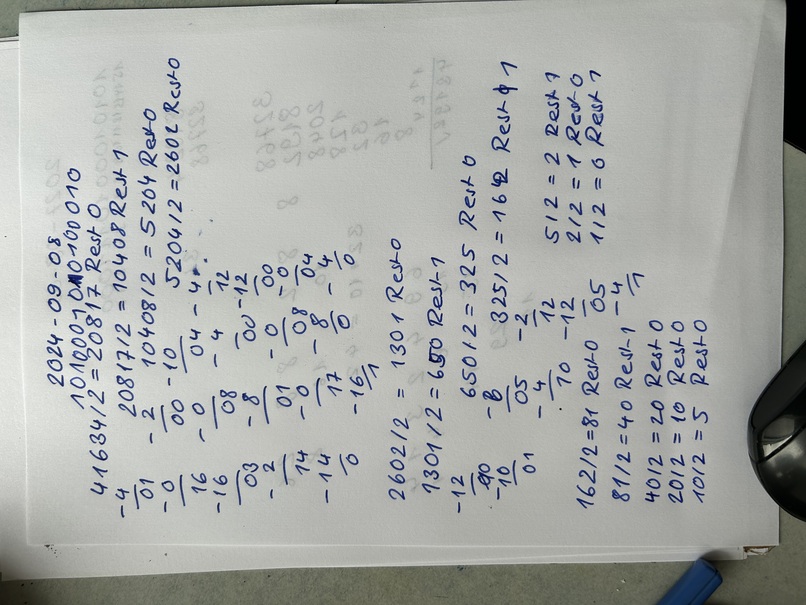 2024-09-08
1010001010100010
41634/2 = 20817 Rest 0
-4 20817/2 = 10408 Rest 1
01 -2 10408/2 = 5204 Rest 0
-0 00 -10 5204/2 = 2602 Rest 0
16 -0 04 -4
-16 08 -4 12
03 -8 00 -12
-2 01 -0 00
14 -0 08 -0
-14 17 -8 04
0 -16 0 -4
1 0
2602/2 = 1301 Rest 0
1301/2 = 650 Rest 1
-12 650/2 = 325 Rest 0
10 -6 325/2 = 162 Rest 1
-10 05 -2
01 -4 12
10 -12
-10 05
-4
1
162/2 = 81 Rest 0
81/2 = 40 Rest 1
40/2 = 20 Rest 0
20/2 = 10 Rest 0
10/2 = 5 Rest 0
5/2 = 2 Rest 1
2/2 = 1 Rest 0
1/2 = 0 Rest 1